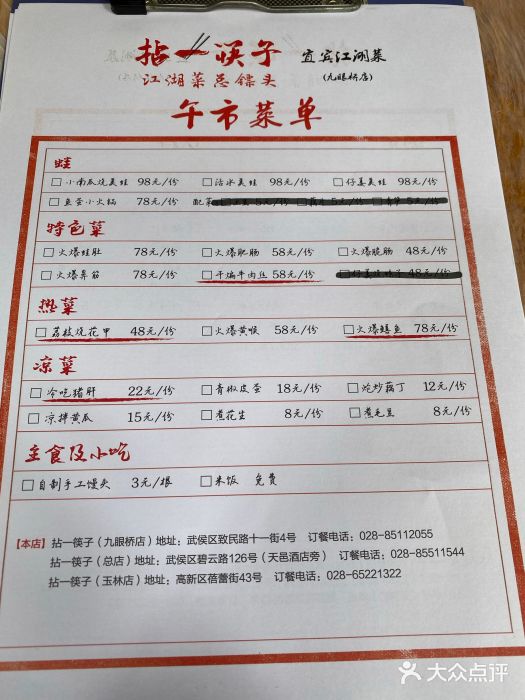 拈一筷子 宜宾江湖菜
江湖菜总镖头 (九眼桥店)
午市菜单
蛙
小南瓜烧美蛙 98元/份 活水美蛙 98元/份 仔姜美蛙 98元/份
鱼蛋小火锅 78元/份 配菜 5元/份 5元/份 5元/份
特色菜
火爆蛙肚 78元/份 火爆肥肠 58元/份 火爆脆肠 48元/份
火爆鼻筋 78元/份 干煸牛肉丝 58元/份 48元/份
热菜
荔枝烧花甲 48元/份 火爆黄喉 58元/份 火爆鳝鱼 78元/份
凉菜
冷吃猪肝 22元/份 青椒皮蛋 18元/份 炝炒藕丁 12元/份
凉拌黄瓜 15元/份 煮花生 8元/份 煮毛豆 8元/份
主食及小吃
自制手工馒头 3元/根 米饭 免费
【本店】拈一筷子(九眼桥店)地址:武侯区致民路十一街4号 订餐电话:028-85112055
拈一筷子(总店)地址:武侯区碧云路126号(天邑酒店旁) 订餐电话:028-85511544
拈一筷子(玉林店)地址:高新区蓓蕾街43号 订餐电话:028-65221322
大众点评